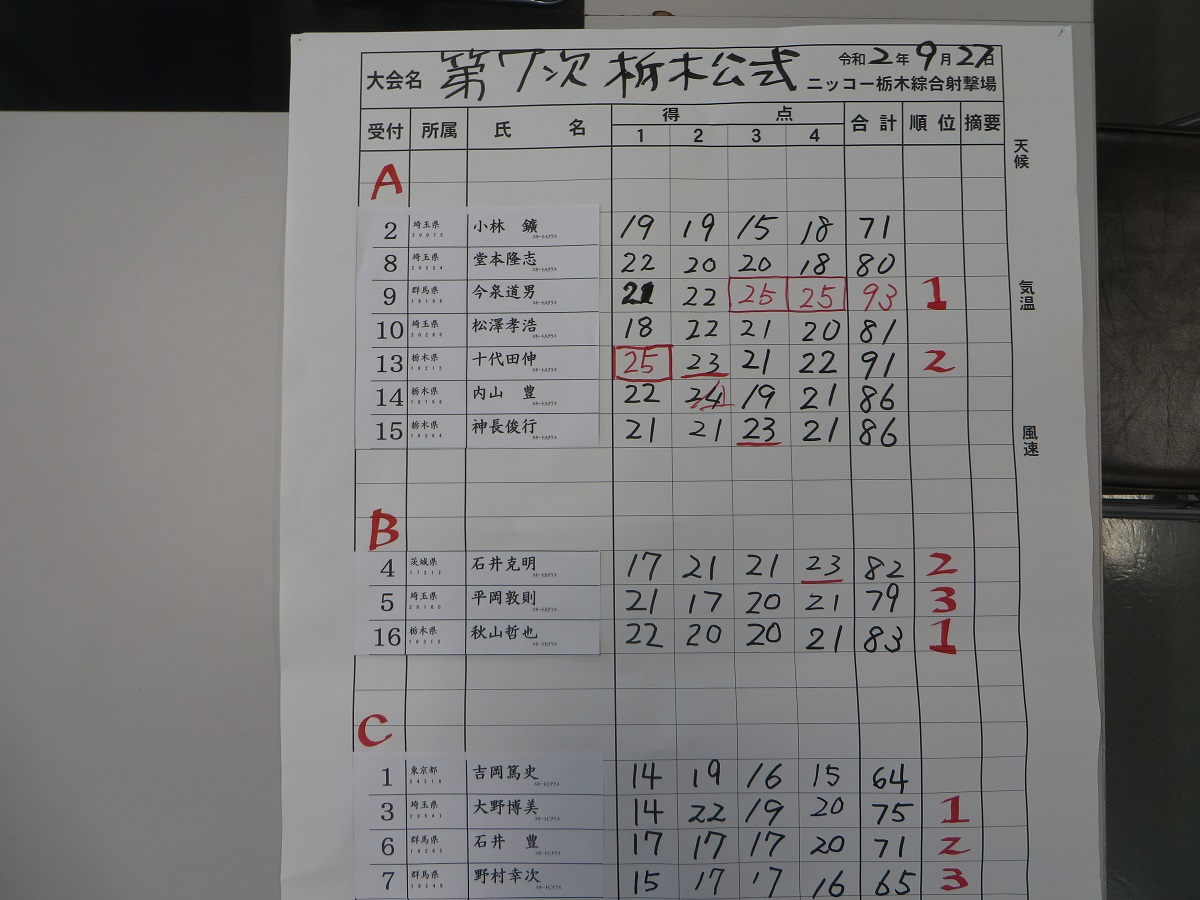 大会名 第7次 栃木公式 令和2年9月27日
ニッコー栃木綜合射撃場
受付 所属 氏名 得点 合計 順位 摘要
1 2 3 4
天候
A
2 埼玉県 小林 鑛 19 19 15 18 71
8 埼玉県 堂本隆志 22 20 20 18 80
9 群馬県 今泉道男 21 22 25 25 93 1
気温
10 埼玉県 松澤孝浩 18 22 21 20 81
13 栃木県 十代田伸 25 23 21 22 91 2
14 栃木県 内山 豊 22 24 19 21 86
15 栃木県 神長俊行 21 21 23 21 86
風速
B
4 茨城県 石井克明 17 21 21 23 82 2
5 埼玉県 平岡敦則 21 17 20 21 79 3
16 栃木県 秋山哲也 22 20 20 21 83 1
C
1 東京都 吉岡篤史 14 19 16 15 64
3 埼玉県 大野博美 14 22 19 20 75 1
6 群馬県 石井 豊 17 17 17 20 71 2
7 群馬県 野村幸次 15 17 17 16 65 3